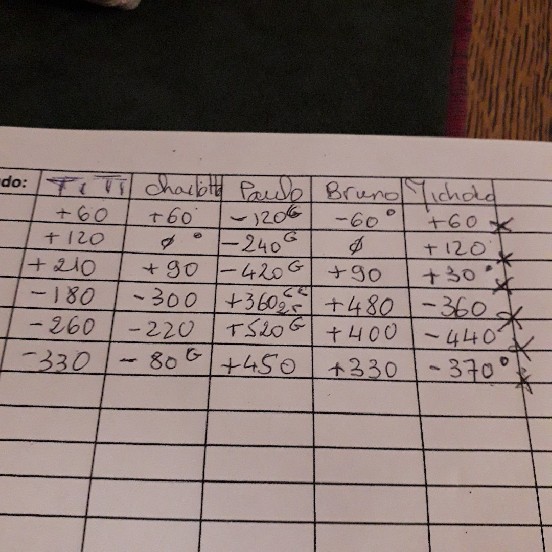 do: Ti Ti Charlotte Paulo Bruno Michael
+60 +60 -120G -60° +60 x
+120 ø° -240G ø +120 x
+210 +90 -420G +90 +30° x
-180 -300 +360 +480 -360 x
-260 -220 +520G +400 -440 x
-330 -80G +450 +330 -370° x